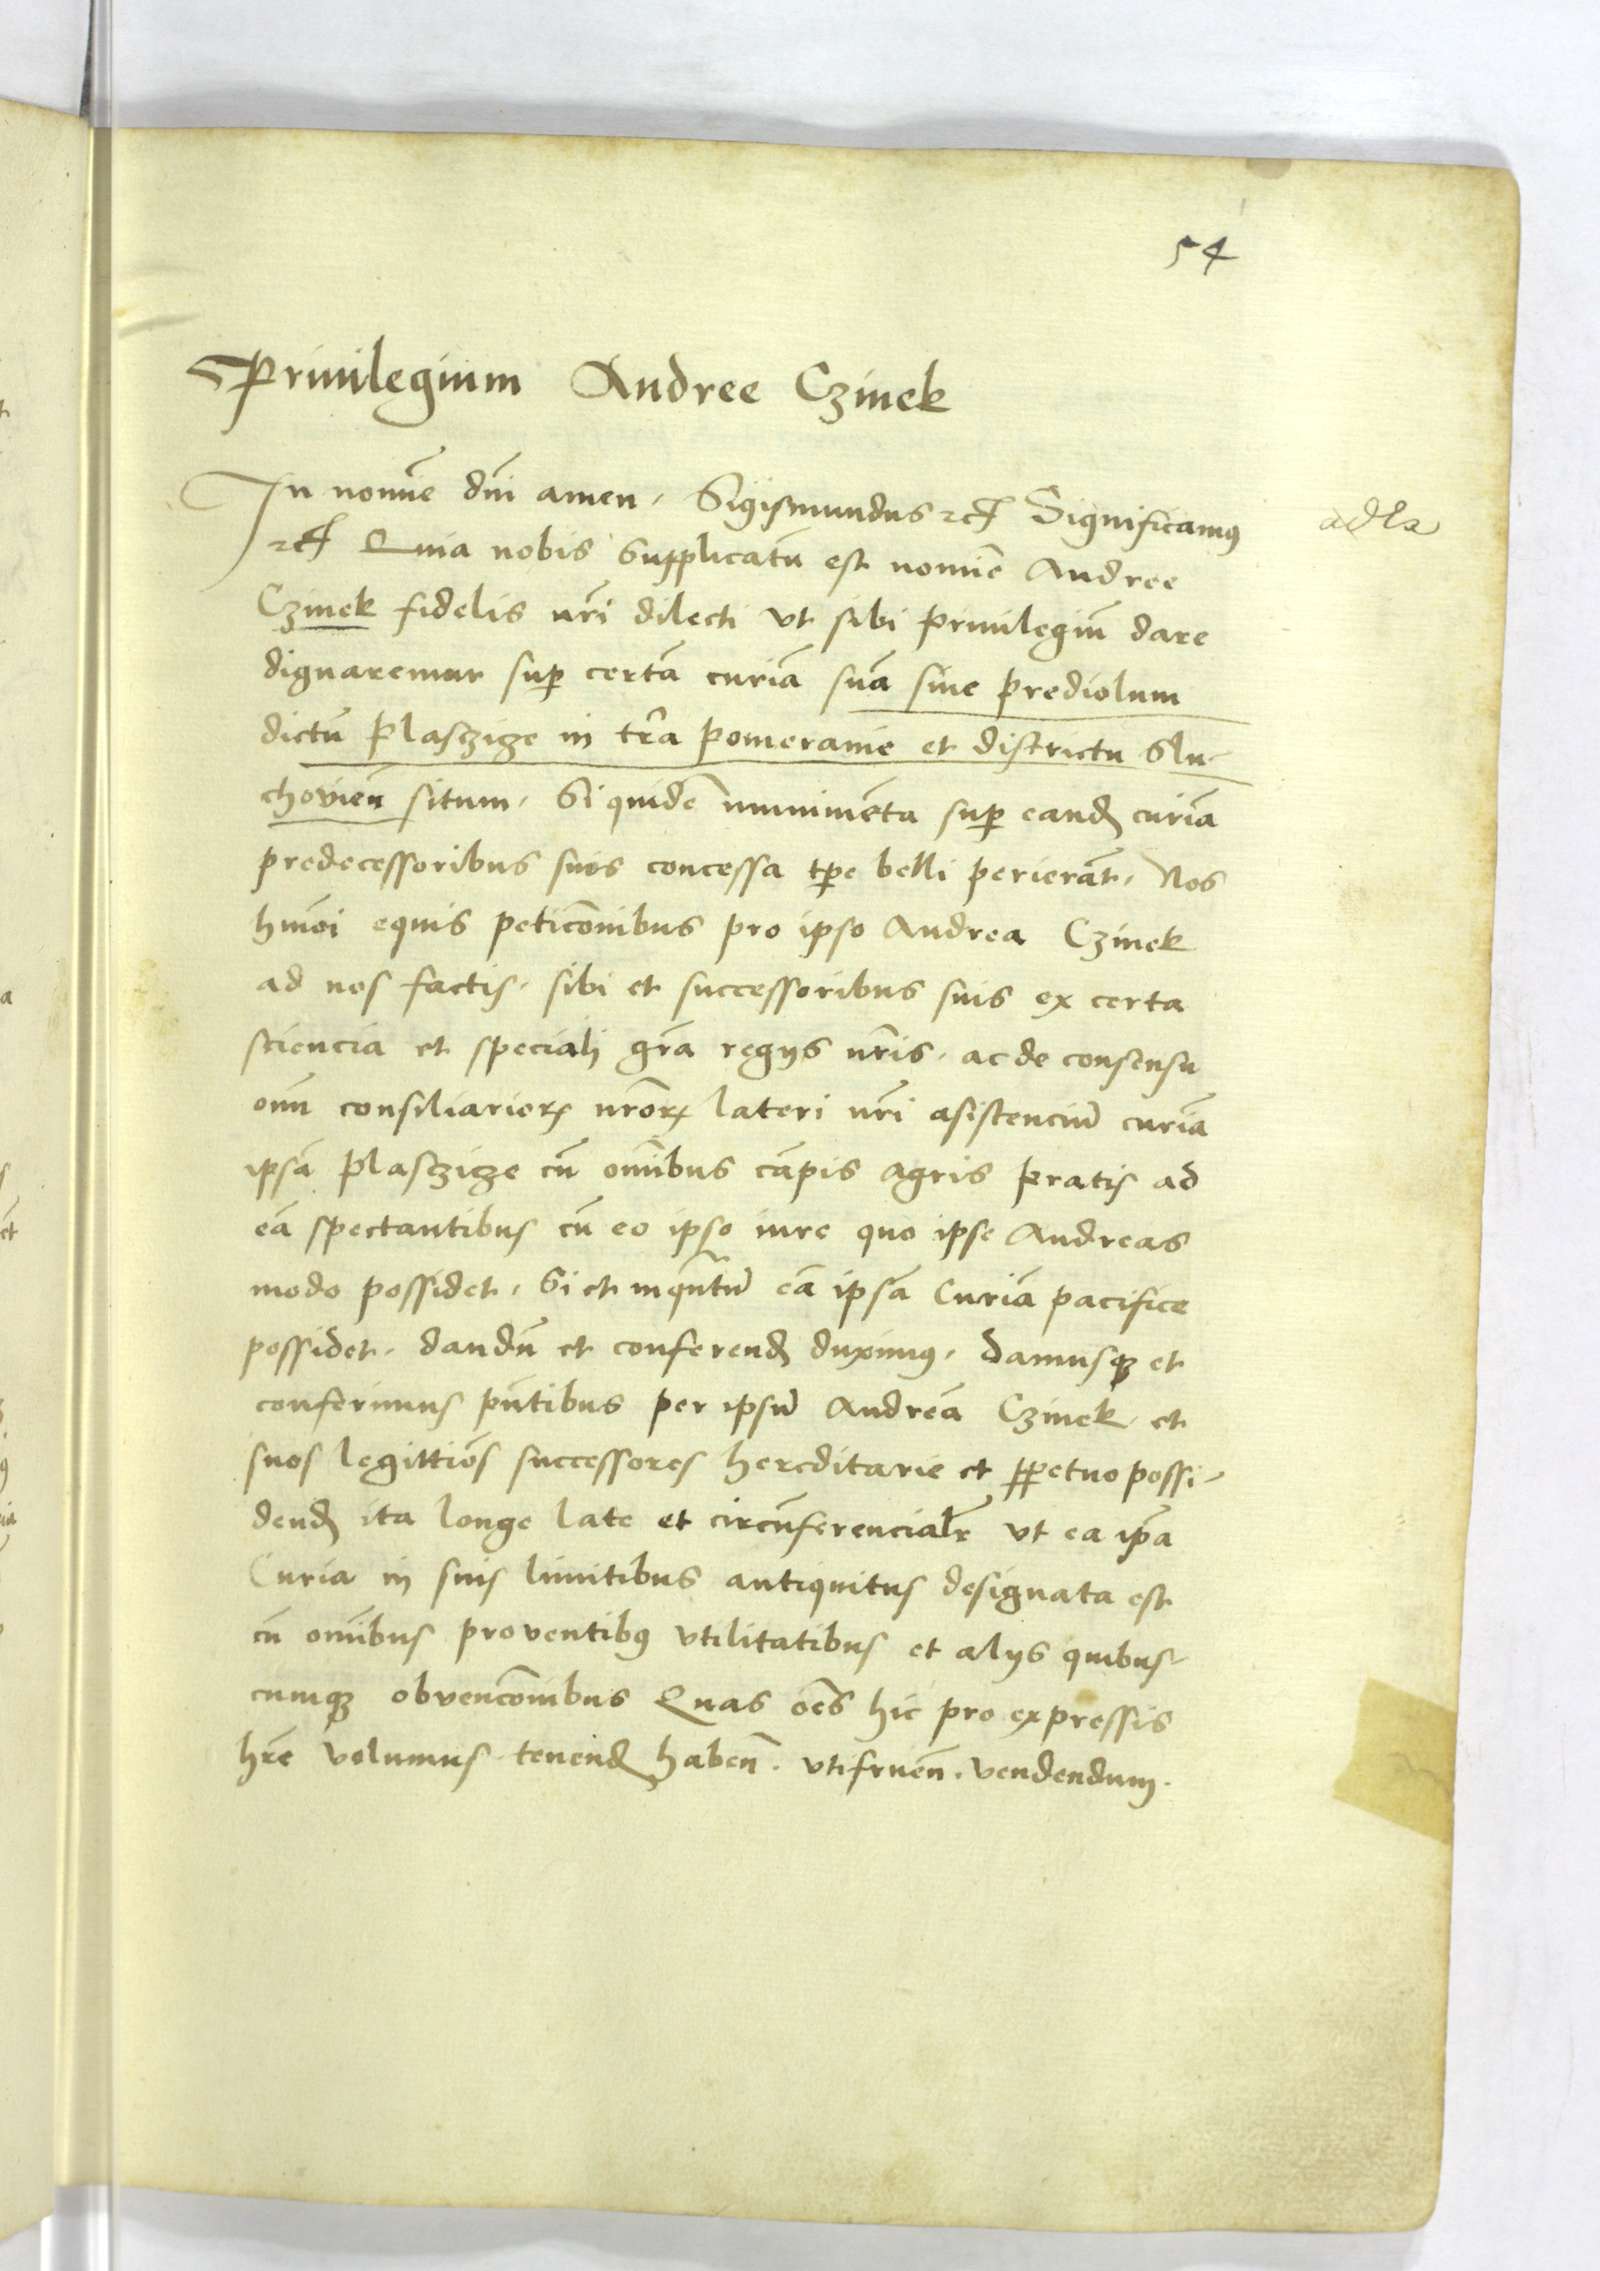 54
Privilegium Andree Czinek
In noīe dn̄i amen. Sigismundus rc̄ Significamus
rc̄ Quia nobis supplicatū est noīe Andree
Czinek fidelis nr̄i dilecti ut sibi privilegiū dare
dignaremur sup̱ certā curiā suā sive prediolum
dictū Plasczicze in tr̄a pomeranie et districtu Slu-
chovien̄ situm. Si quidē munimēta sup̱ eand̄ curiā
predecessoribus suis concessa tp̄e belli perierāt. Nos
hmōi equis peticōnibus pro ipso Andrea Czinek
ad nos factis. sibi et successoribus suis ex certa
sciencia et speciali gr̄a regijs nr̄is. ac de consensu
om̄ consiliarioꝝ nr̄oꝝ lateri nr̄i asistenciū curiā
ipsā Plasczicze cū om̄ibus cāpis agris pratis ad
eā spectantibus cū eo ipso iure quo ipse Andreas
modo possidet. Si et inqn̄tū eā ipsā Curiā pacifice
possidet. dandū et conferend̄ duximꝰ. damusqꝫ et
conferimus pn̄tibus per ipsū Andreā Czinek et
suos legittiōs successores hereditarie et ꝑpetuo possi-
dend̄ ita longe late et circūferencialr̄ ut ea ip̄a
Curia in suis limitibus antiquitus designata est
cū om̄ibus proventibꝰ utilitatibus et alijs quibus-
cumqꝫ obvencōnibus Quas oēs hic pro expressis
hr̄e volumus tenend̄ haben̄. utifruen̄. vendendum.